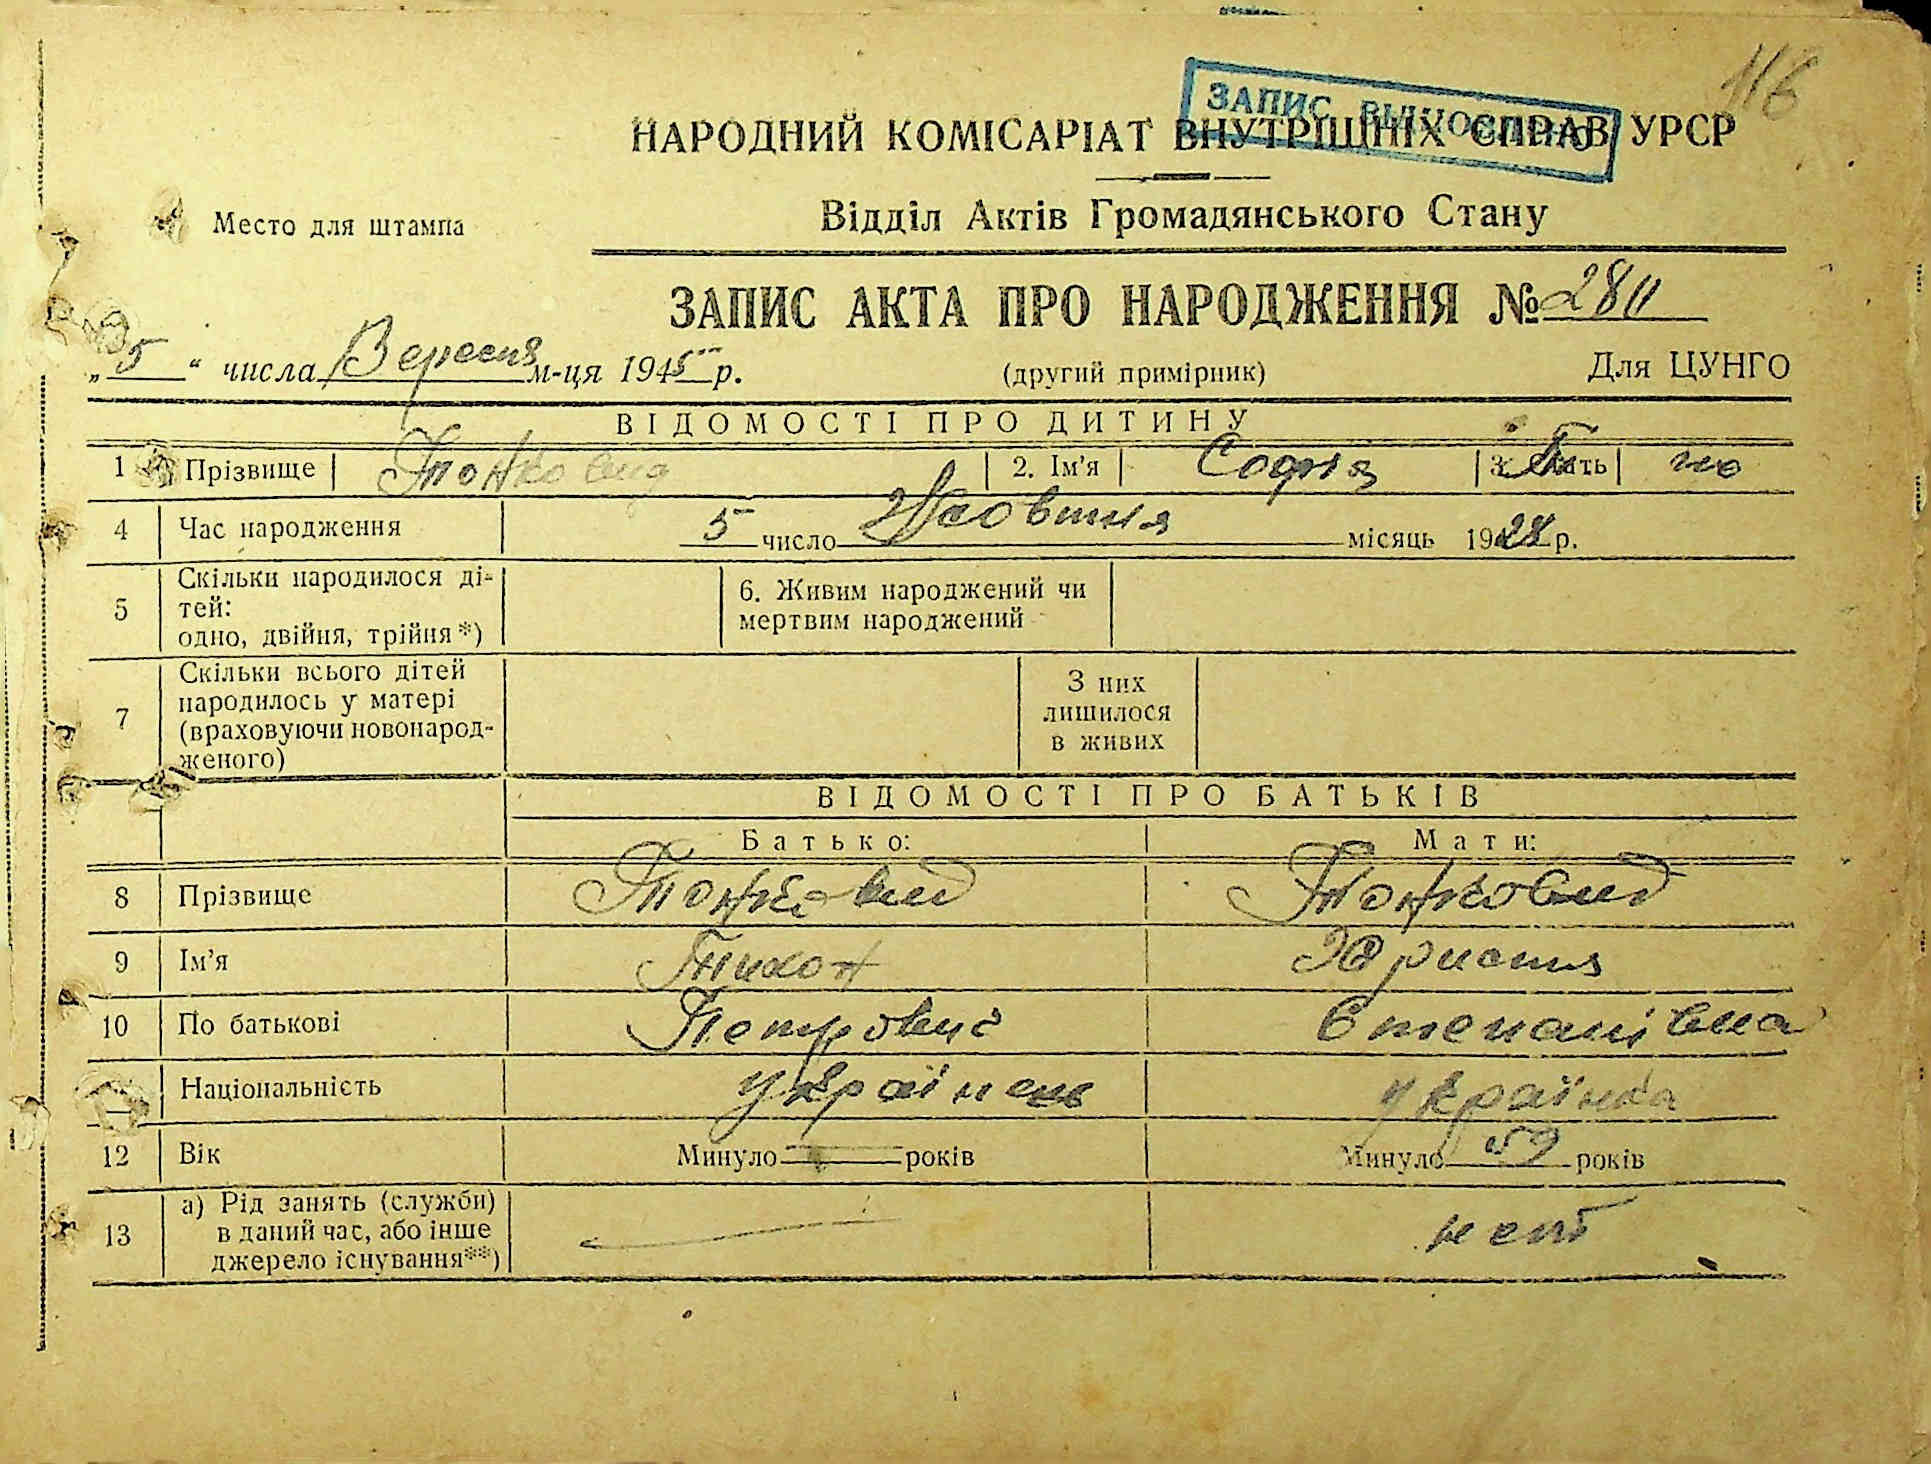 116
ЗАПИС
НАРОДНИЙ КОМІСАРІАТ ВНУТРІШНІХ СПРАВ УРСР
Відділ Актів Громадянського Стану
Место для штампа
ЗАПИС АКТА ПРО НАРОДЖЕННЯ №
„5“ числа Вересня м-ця 1945 р. (другий примірник) Для ЦУНГО
ВІДОМОСТІ ПРО ДИТИНУ
1 Прізвище Тонковид 2. Ім'я Софія 3. Стать
4 Час народження 5 число Жовтня місяць 1928 р.
5 Скільки народилося ді-
тей:
одно, двійня, трійня*)
6. Живим народжений чи
мертвим народжений
7 Скільки всього дітей
народилось у матері
(враховуючи новонарод-
женого)
З них
лишилося
в живих
ВІДОМОСТІ ПРО БАТЬКІВ
Батько: Мати:
8 Прізвище Тонковид Тонковид
9 Ім'я Тихон Христия
10 По батькові Петрович Степанівна
Національність українець українка
12 Вік Минуло років Минуло 59 років
13 а) Рід занять (служби)
в даний час, або інше
джерело існування**)
нет